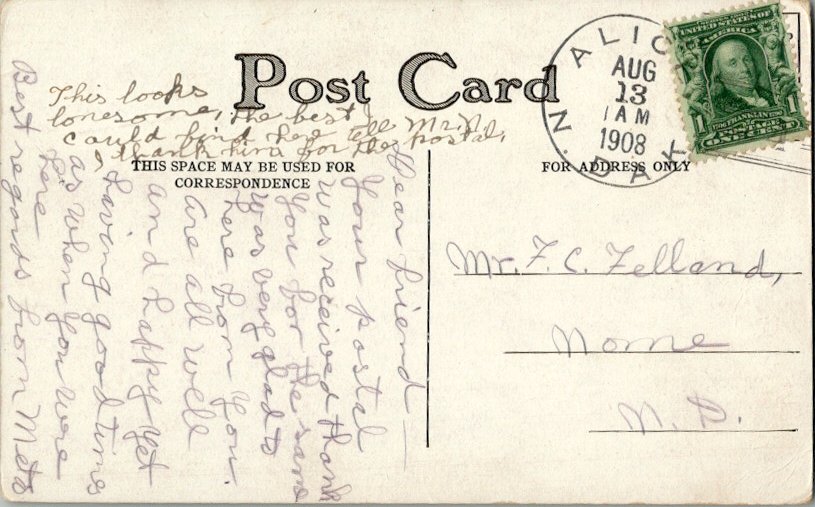 Post Card
This looks
lonesome, the best I
could find here tell Mr. N.
I thank him for the postal.
THIS SPACE MAY BE USED FOR
CORRESPONDENCE
FOR ADDRESS ONLY
Dear friend —
Your postal
was received thank
you for the same
was very glad to
here from you.
are all well
and happy yet
having good times
as when you were
here
Best regards from Meta
ALIC
AUG
13
1 AM
1908
N. DAK
UNITED STATES OF
AMERICA
1 FRANKLIN 1
POSTAGE
ONE CENT
Mr. F. C. Felland,
Nome
N. D.